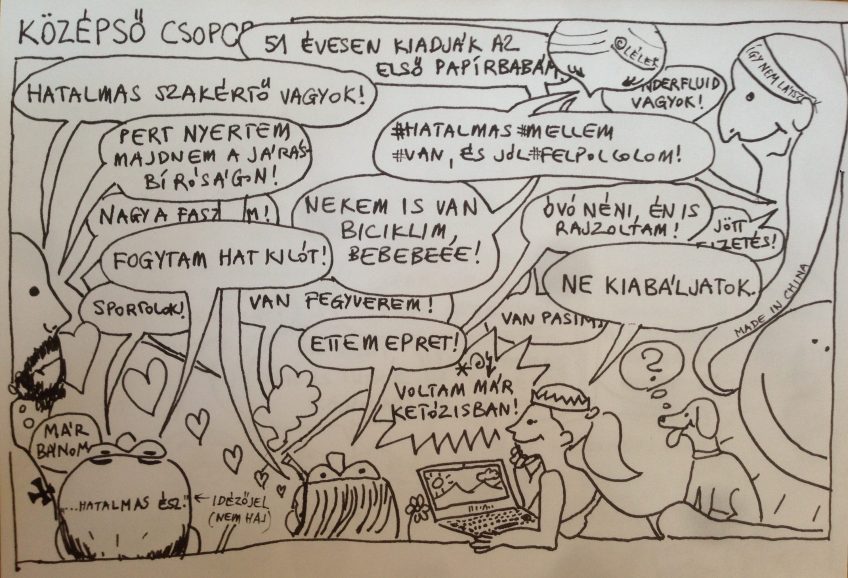 KÖZÉPSŐ
51 ÉVESEN KIADJÁK AZ
ELSŐ PAPÍRBABÁM
©LÉLEK
HATALMAS SZAKÉRTŐ VAGYOK!
VAGYOK!
ÍGY NEM
PERT NYERTEM
MAJDNEM A JÁRÁS-
BÍRÓSÁGON!
#HATALMAS #MELLEM
#VAN, ÉS JÓL #FELPOLCOLOM!
NAGY A
NEKEM IS VAN
BICIKLIM,
BEBEBEÉE!
ÓVÓ NÉNI, ÉN IS
RAJZOLTAM!
JÖTT
FOGYTAM HAT KILÓT!
NE KIABÁLJATOK.
SPORTOLOK!
VAN FEGYVEREM!
VAN PASIM
MADE IN CHINA
ETTEM EPRET!
?
VOLTAM MÁR
KETÓZISBAN!
MÁR
BÁNOM
...HATALMAS ÉSZ."
← IDÉZŐJEL
(NEM HAJ)